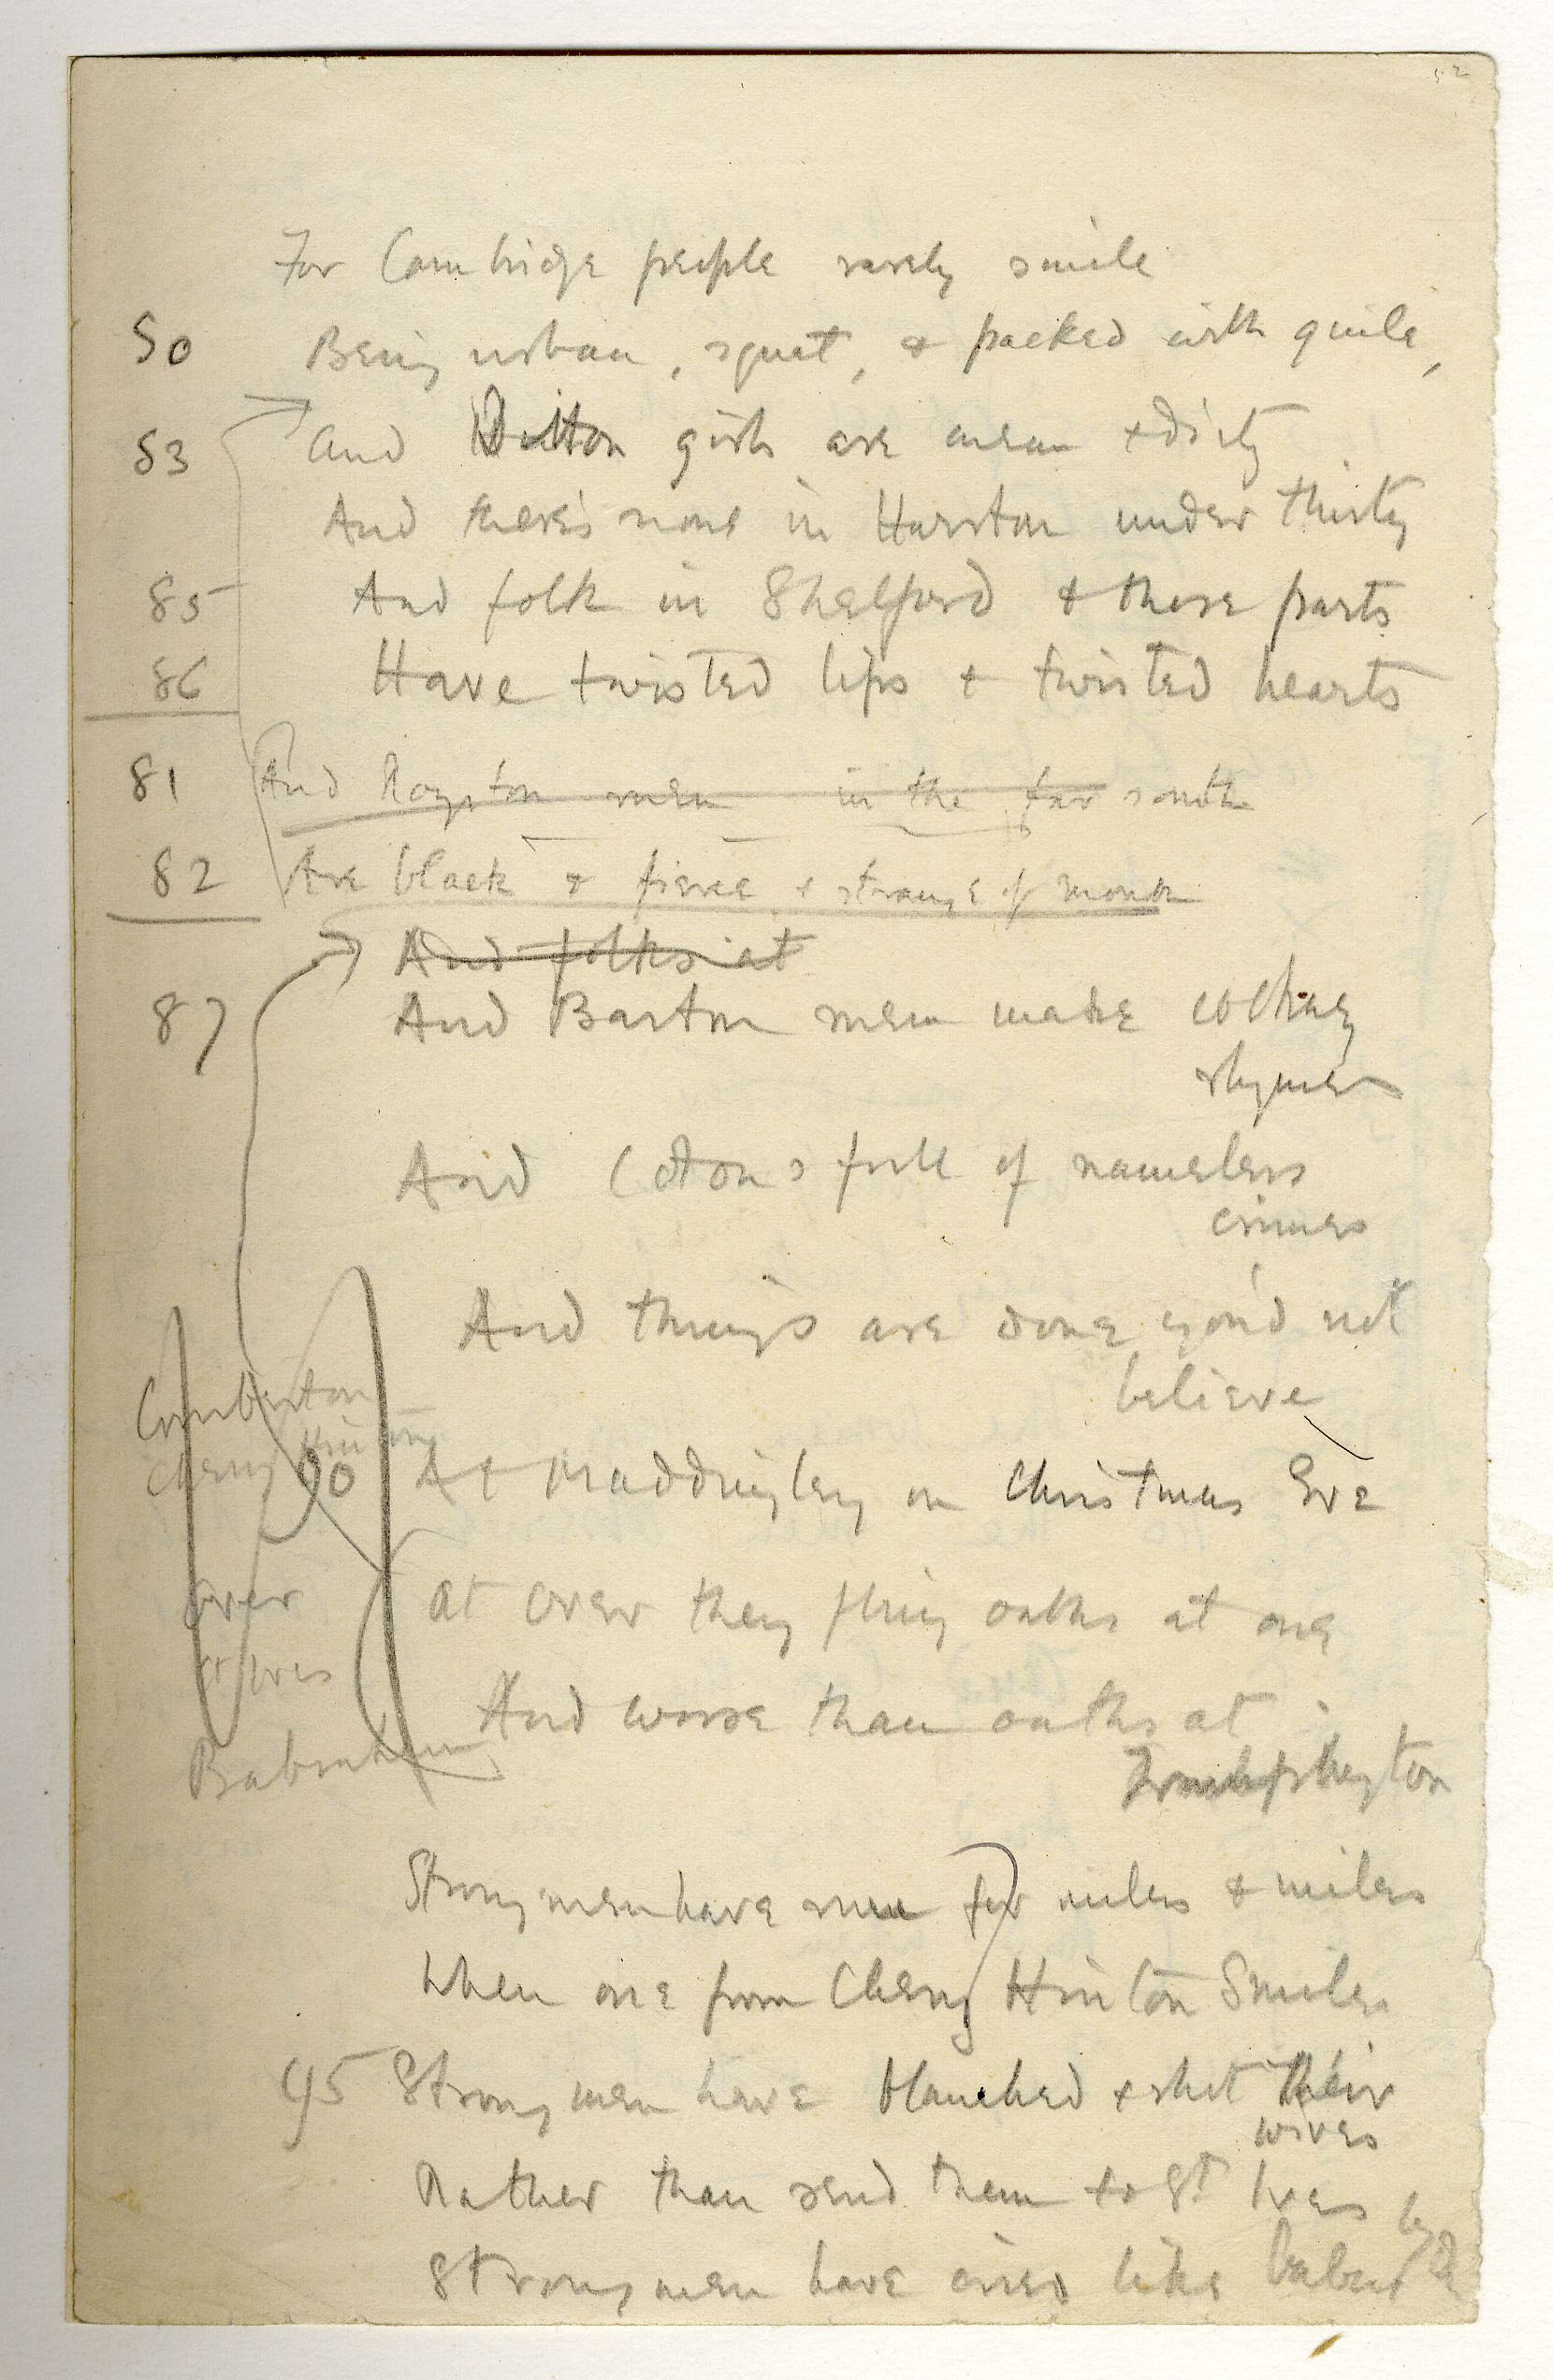 52
For Cambridge people rarely smile
80 Being urban, squat, & packed with guile,
83 And Ditton girls are mean & dirty
And there's none in Harston under thirty
85 And folk in Shelford & those parts
86 Have twisted lips & twisted hearts
81 And Royston men in the far south
82 Are black & fierce & strange of mouth
And folks at
87 And Barton men make cockney
rhymes
And Coton's full of nameless
crimes
And things are done you'd not
believe
Comberton
Cherry Hinton
90 At Maddingley on Christmas Eve
Over
At Over they fling oaths at one
St Ives
And worse than oaths at
Babraham
Trumpington
Strong men have run for miles & miles
When one from Cherry Hinton Smiles
95 Strong men have blanched & shot their
wives
Rather than send them to St Ives
Strong men have cried like babes